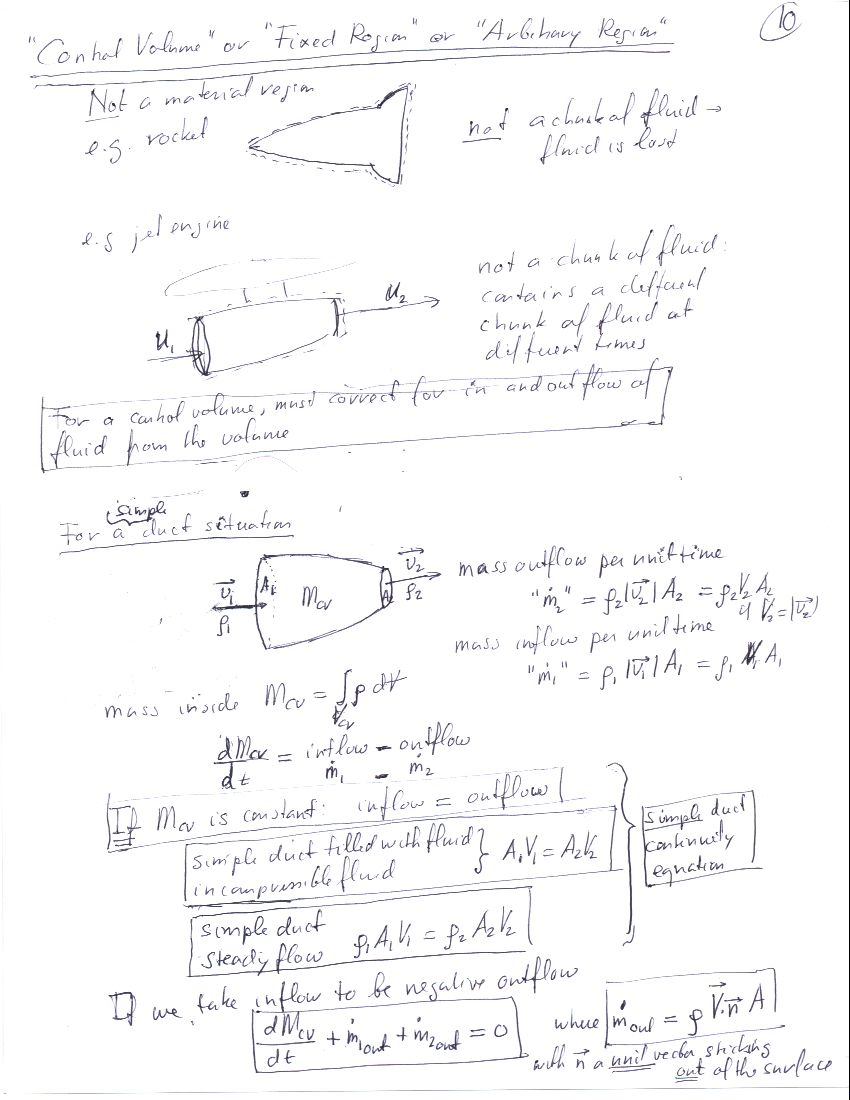 10
"Control Volume" or "Fixed Region" or "Arbitrary Region"
Not a material region
e.g. rocket
not a chunk of fluid →
fluid is lost
e.g jet engine
u₁
u₂
not a chunk of fluid:
contains a different
chunk of fluid at
different times
For a control volume, must correct for in and outflow of
fluid from the volume
simple
For a duct situation
v⃗₁
ρ₁
A₁
M_cv
A₂
v⃗₂
ρ₂
mass outflow per unit time
"ṁ₂" = ρ₂|v⃗₂|A₂ = ρ₂V₂A₂
if V₂=|v⃗₂|)
mass inflow per unit time
"ṁ₁" = ρ₁|v⃗₁|A₁ = ρ₁V₁A₁
mass inside M_cv = ∫_{V_cv} ρ dV
dM_cv/dt = inflow - outflow
ṁ₁ - ṁ₂
If M_cv is constant: inflow = outflow
simple duct filled with fluid } A₁V₁ = A₂V₂
incompressible fluid
simple duct
steady flow ρ₁A₁V₁ = ρ₂A₂V₂
simple duct
continuity
equation
If we take inflow to be negative outflow
dM_cv/dt + ṁ₁out + ṁ₂out = 0 where ṁout = ρ V⃗·n⃗ A
with n⃗ a unit vector sticking
out of the surface